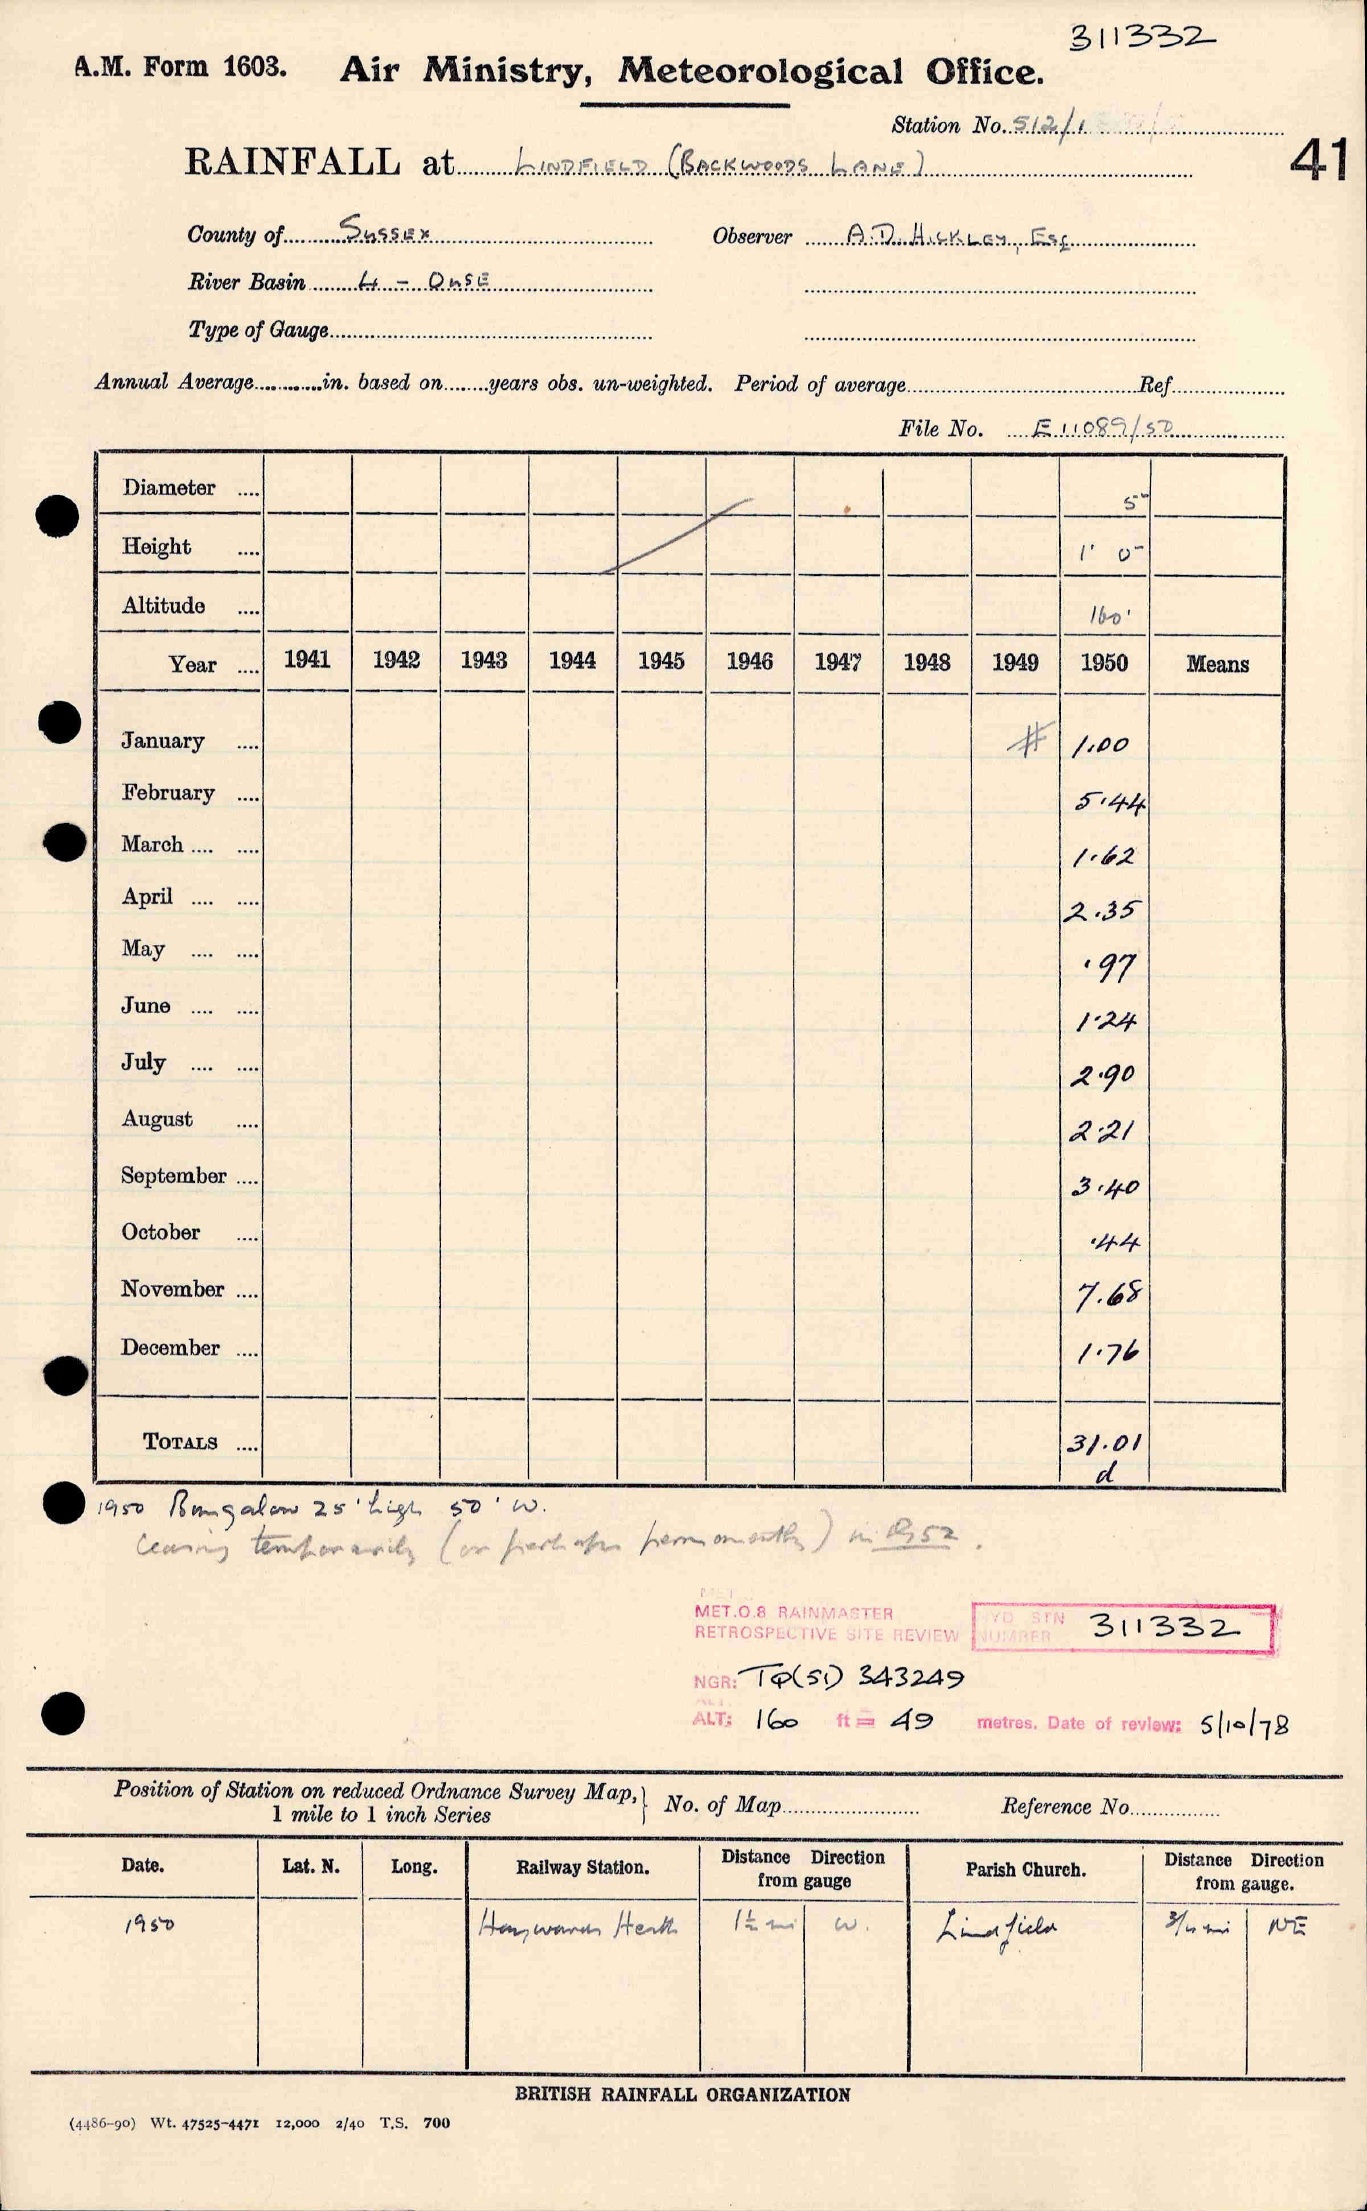 311332
A.M. Form 1603. Air Ministry, Meteorological Office.
Station No. 512/1
RAINFALL at LINDFIELD (BACKWOODS LANE)
41
County of SUSSEX Observer A.D. HICKLEY, Esq
River Basin 4 - OUSE
Type of Gauge
Annual Average in. based on years obs. un-weighted. Period of average Ref
File No. E 11089/50
Diameter 5"
Height 1' 0"
Altitude 160'
Year 1941 1942 1943 1944 1945 1946 1947 1948 1949 1950 Means
January # 1.00
February 5.44
March 1.62
April 2.35
May .97
June 1.24
July 2.90
August 2.21
September 3.40
October .44
November 7.68
December 1.76
TOTALS 31.01
d
1950 Bungalow 25' high 50' W.
temporarily (or perhaps permanently) in 1952.
MET.O.8 RAINMASTER
RETROSPECTIVE SITE REVIEW
HYD STN NUMBER 311332
NGR: TQ(51) 343249
ALT: 160 ft = 49 metres. Date of review: 5/10/78
Position of Station on reduced Ordnance Survey Map,
1 mile to 1 inch Series
No. of Map Reference No.
Date. Lat. N. Long. Railway Station. Distance Direction from gauge Parish Church. Distance Direction from gauge.
1950 Haywards Heath 1½ mi W. Lindfield 3/4 mi NE
BRITISH RAINFALL ORGANIZATION
(4486-90) Wt. 47525-4471 12,000 2/40 T.S. 700